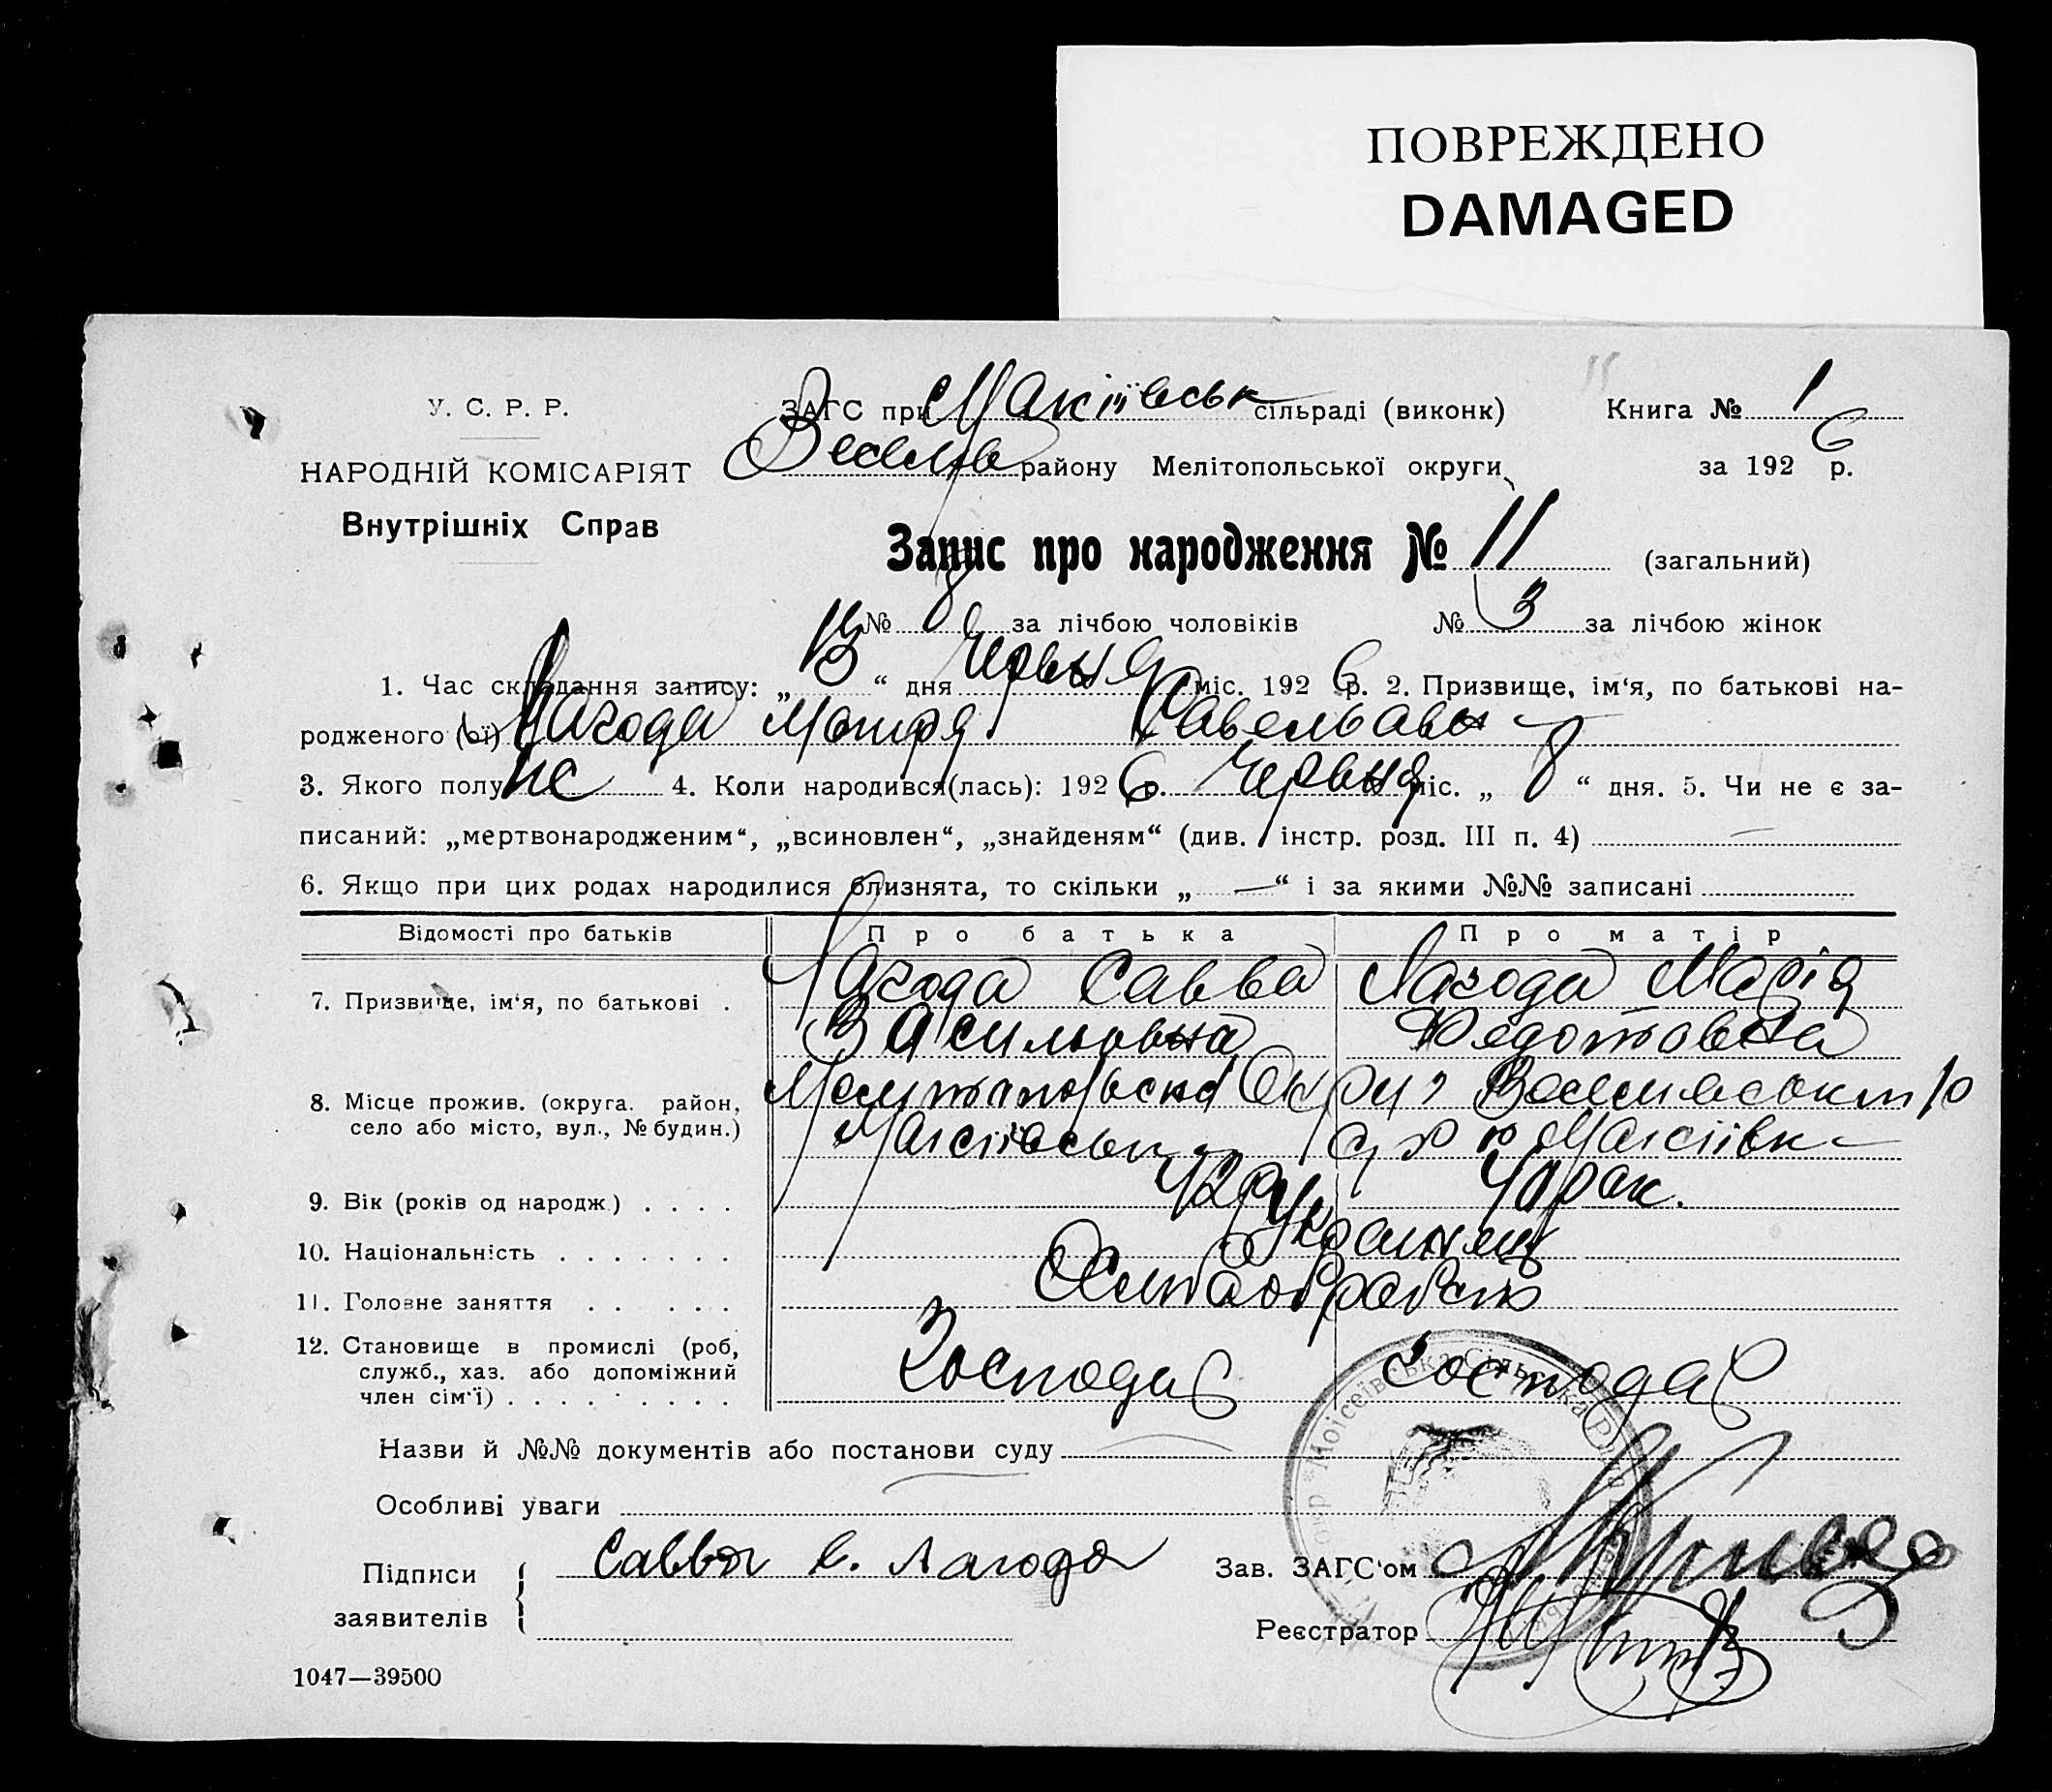 ПОВРЕЖДЕНО
DAMAGED
У. С. Р. Р.
НАРОДНІЙ КОМІСАРІЯТ
Внутрішніх Справ
ЗАГС при Макіївськ сільраді (виконк) Книга № 1
Веселов району Мелітопольської округи за 1926 р.
Запис про народження № 11 (загальний)
№ 8 за лічбою чоловіків № 3 за лічбою жінок
1. Час складання запису: „ 13 “ дня Червня міс. 1926 р. 2. Призвище, ім‘я, по батькові на-
родженого (ої) Лагода Мотря Савельавы
3. Якого полу жс 4. Коли народився(лась): 1926 р. Червня міс. „ 8 “ дня. 5. Чи не є за-
писаний: „мертвонародженим“, „всиновлен“, „знайденям“ (див. інстр. розд. III п. 4) —
6. Якщо при цих родах народилися близнята, то скільки „ — “ і за якими №№ записані
Відомості про батьків Про батька Про матір
7. Призвище, ім‘я, по батькові . Лагода Савва Лагода Марія
Васильовна Федотовна
8. Місце прожив. (округа. район,
село або місто, вул., № будин.)
9. Вік (років од народж.) . . . . 42 р 40 рок.
10. Національність . . . . . . . Украинец
11. Головне заняття . . . . .
12. Становище в промислі (роб,
служб., хаз. або допоміжний
член сім‘ї) . . . . . . . . Господар господар
Назви й №№ документів або постанови суду —
Особливі уваги
Підписи
заявителів
Савва В. Лагода
Зав. ЗАГС‘ом
Реєстратор
1047—39500